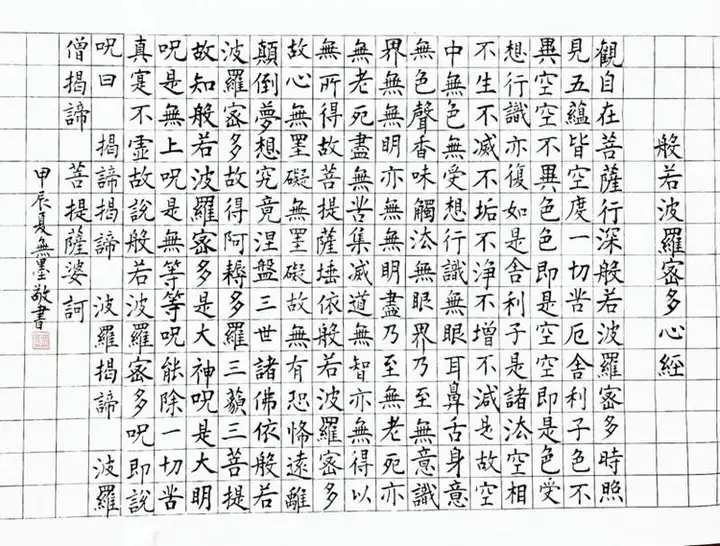 般若波羅密多心経
觀自在菩薩行深般若波羅密多時照
見五蘊皆空度一切苦厄舍利子色不
異空空不異色色即是空空即是色受
想行識亦復如是舍利子是諸法空相
不生不滅不垢不淨不增不減是故空
中無色無受想行識無眼耳鼻舌身意
無色聲香味觸法無眼界乃至無意識
界無無明亦無無明盡乃至無老死亦
無老死盡無苦集滅道無智亦無得以
無所得故菩提薩埵依般若波羅密多
故心無罣礙無罣礙故無有恐怖遠離
顛倒夢想究竟涅盤三世諸佛依般若
波羅密多故得阿耨多羅三藐三菩提
故知般若波羅密多是大神呪是大明
呪是無上呪是無等等呪能除一切苦
真寔不虛故說般若波羅密多呪即說
呪曰 揭諦揭諦 波羅揭諦 波羅
僧揭諦 菩提薩婆訶
甲辰夏無墨敬書